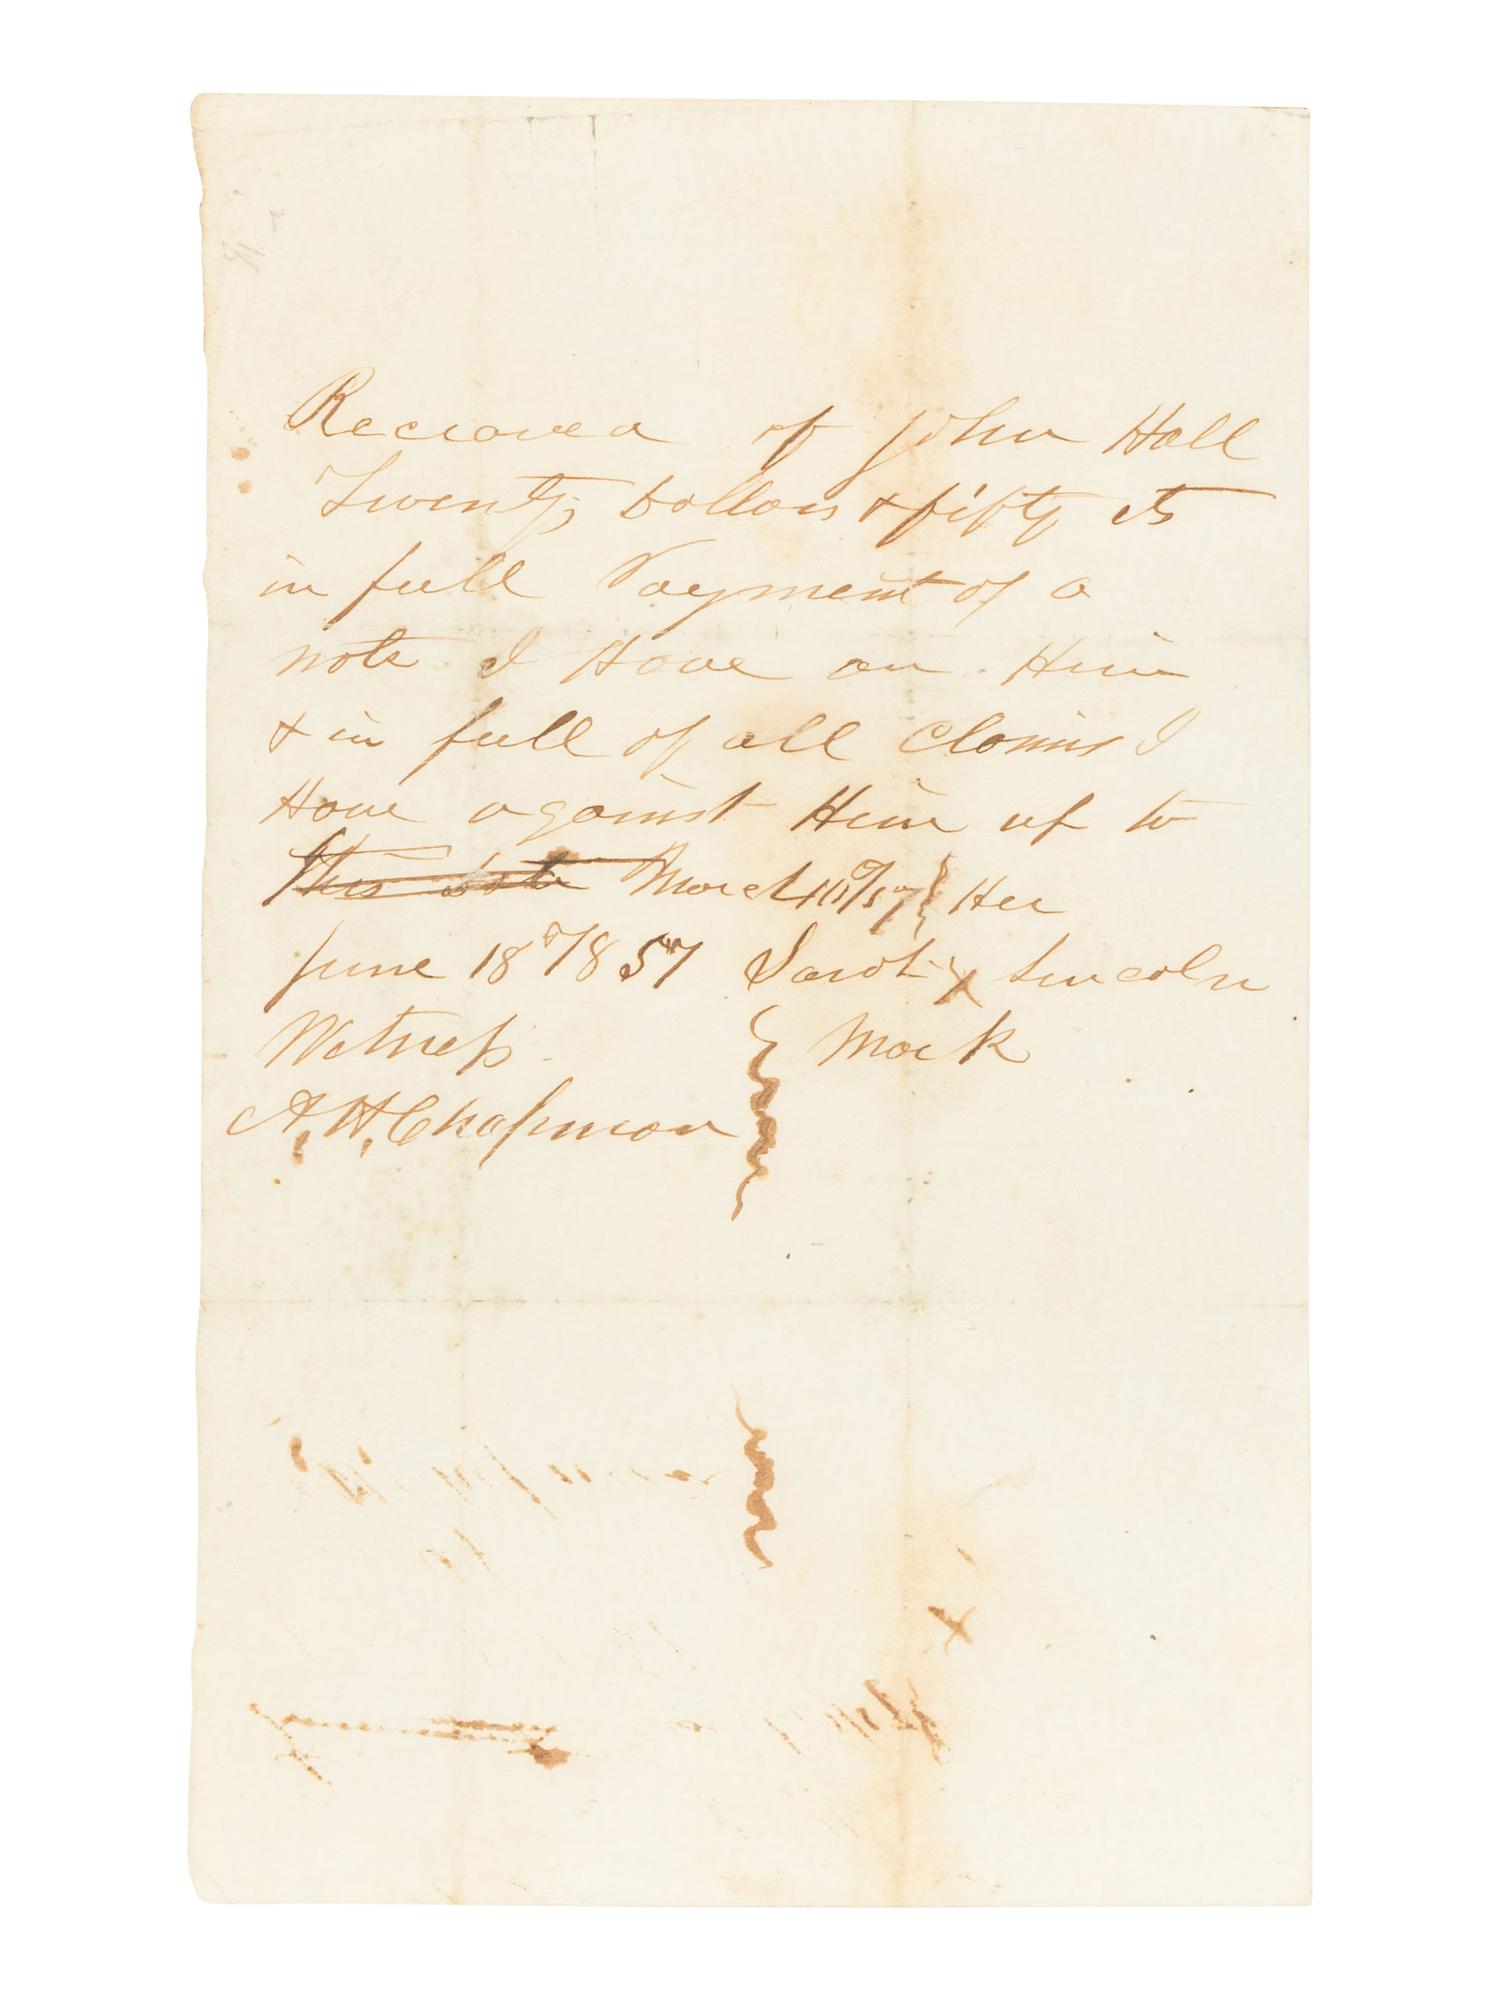 Recieved of John Hall
Twenty Dollars & fifty cts
in full Payment of a
note I Have on Him
& in full of all Claims I
Have against Him up to
this date March 10th/57 Her
June 18th/857 Sarah X Lincoln
Witness Mark
A. H. Chapman